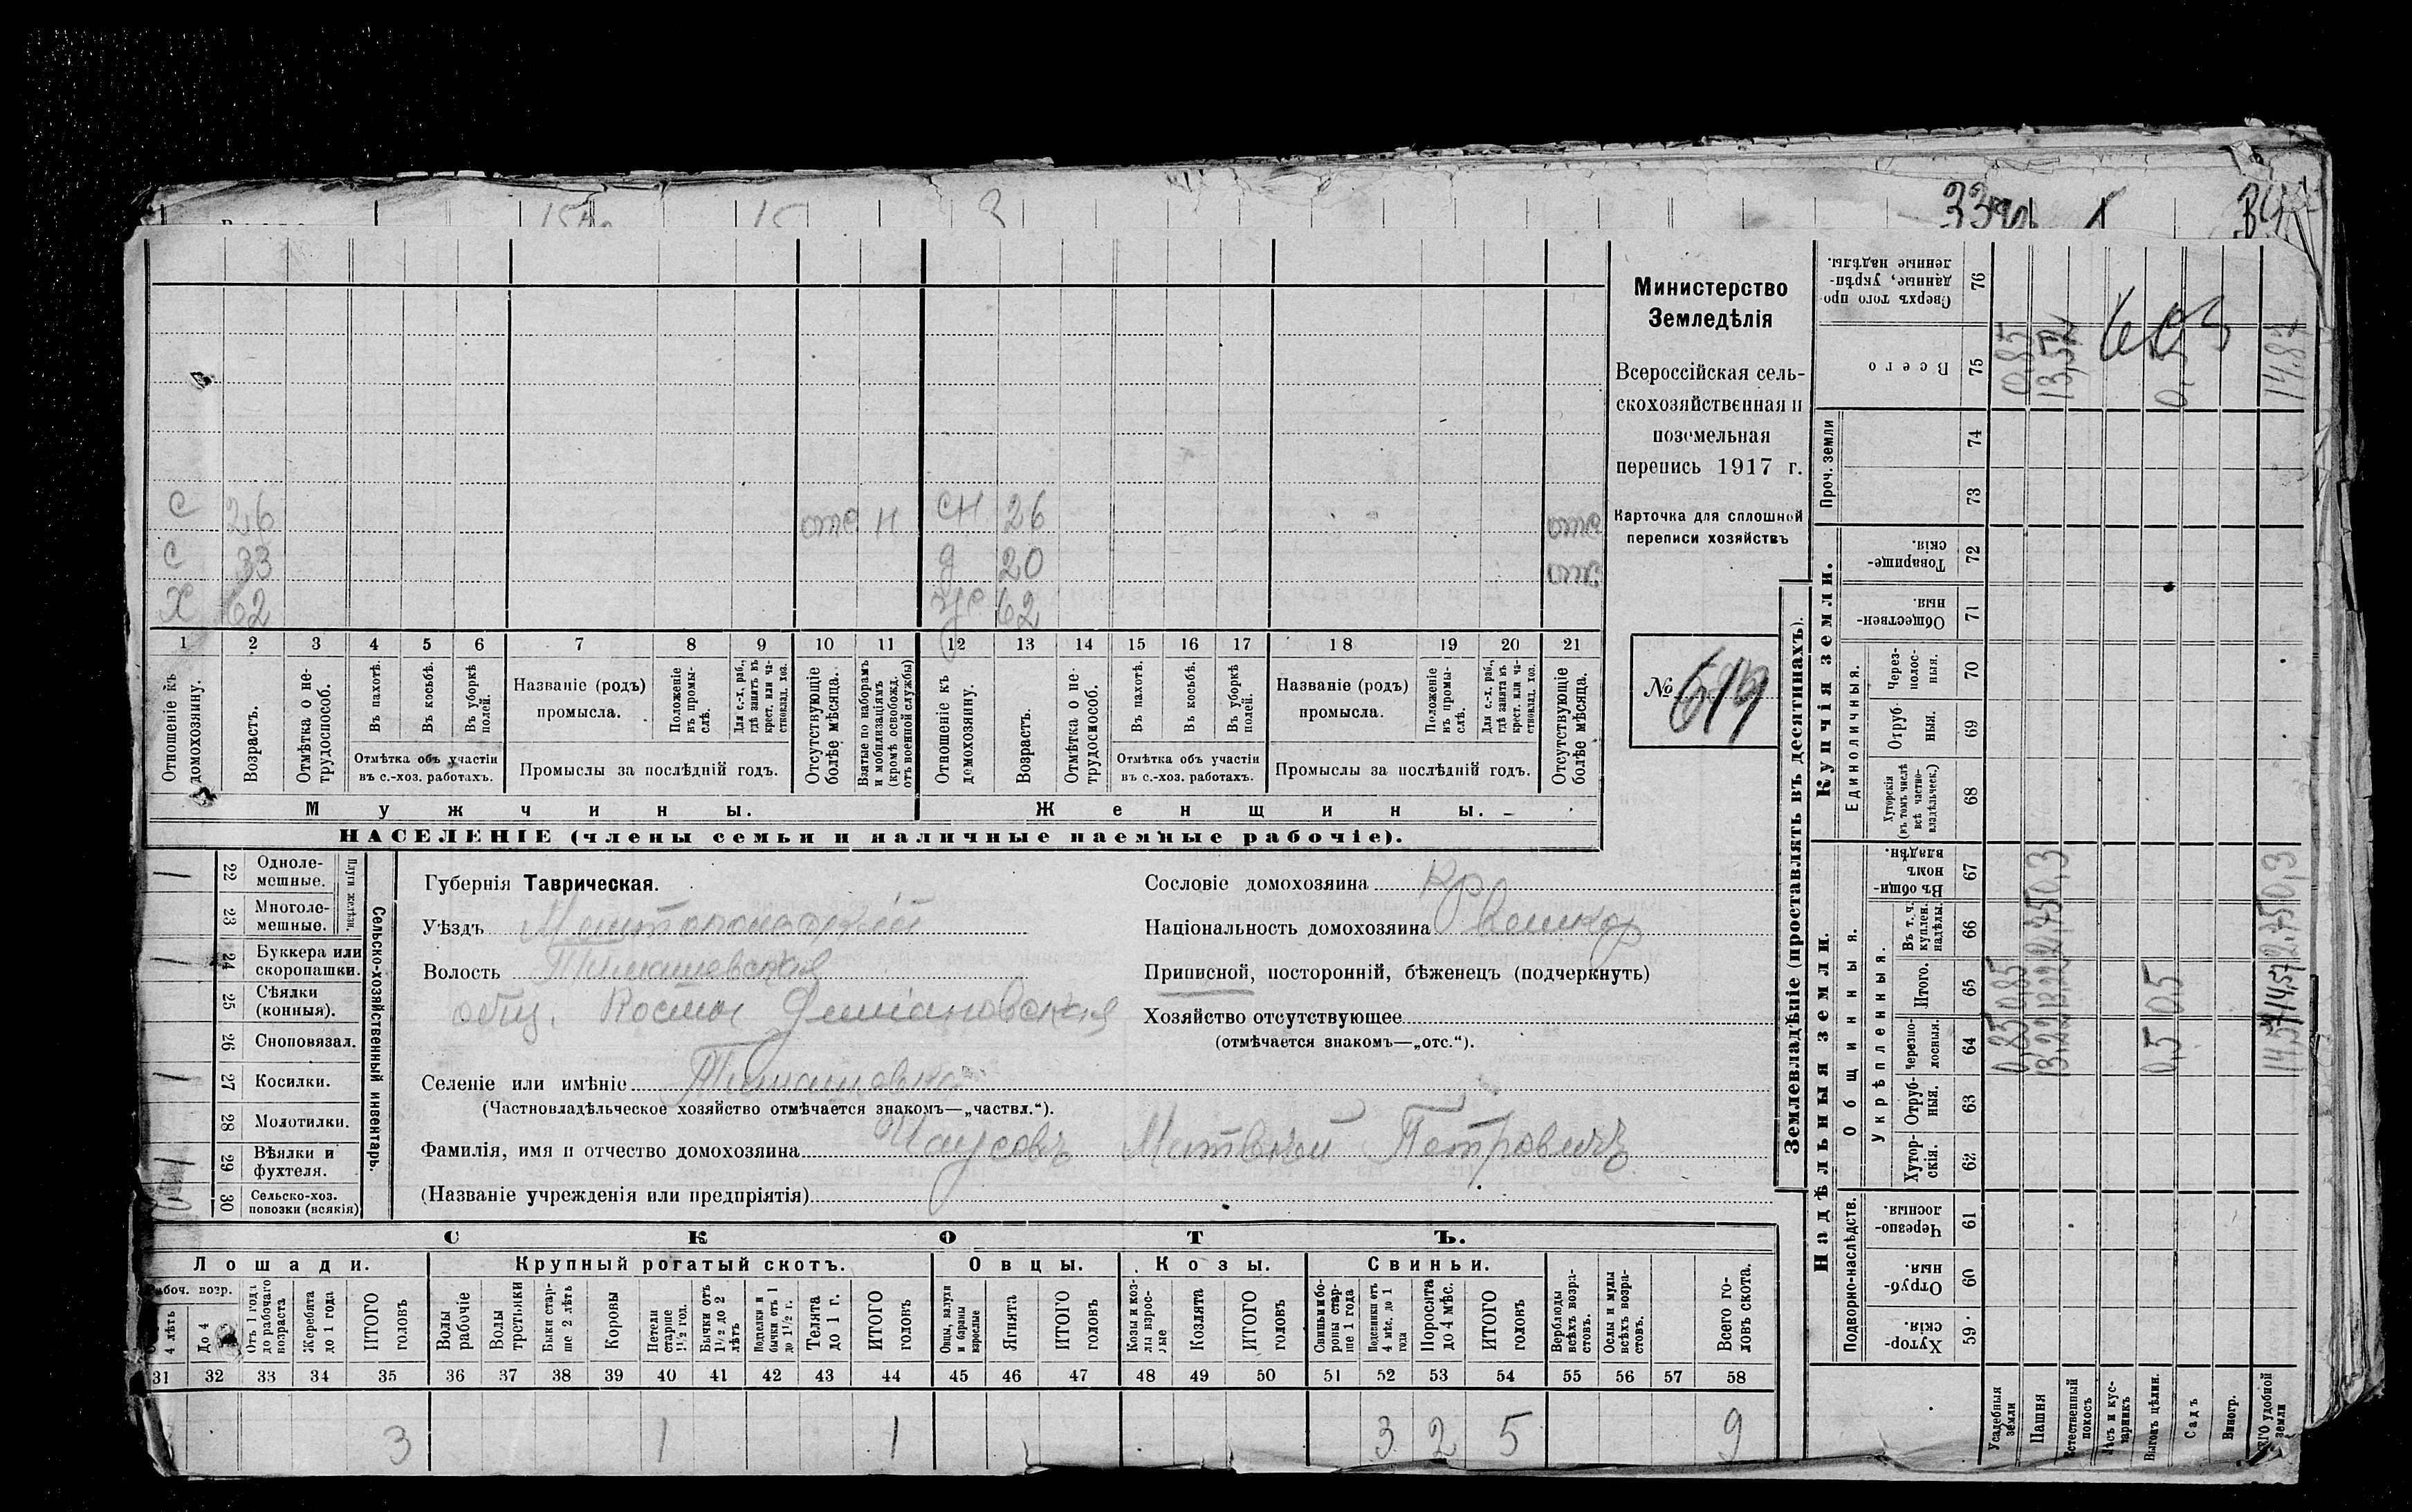 15
33
С 26 отс Н СН 26 отс
С 33 Д 20 отс
Х 62 Ж 62
1 2 3 4 5 6 7 8 9 10 11 12 13 14 15 16 17 18 19 20 21
Отношеніе къ домохозяину.
Возрастъ.
Отмѣтка о нетрудоспособ.
Въ пахотѣ.
Въ косьбѣ.
Въ уборкѣ полей.
Отмѣтка объ участіи
въ с.-хоз. работахъ.
Названіе (родъ)
промысла.
Положеніе въ промыслѣ.
Для с.-х. раб., гдѣ занятъ въ крест. или частновлад. хоз.
Промыслы за послѣдній годъ.
Отсутствующіе болѣе мѣсяца.
Взятые по наборамъ и мобилизаціямъ (кромѣ освобожд. отъ военной службы)
Отношеніе къ домохозяину.
Возрастъ.
Отмѣтка о нетрудоспособ.
Въ пахотѣ.
Въ косьбѣ.
Въ уборкѣ полей.
Отмѣтка объ участіи
въ с.-хоз. работахъ.
Названіе (родъ)
промысла.
Положеніе въ промыслѣ.
Для с.-х. раб., гдѣ занята въ крест. или частновлад. хоз.
Промыслы за послѣдній годъ.
Отсутствующіе болѣе мѣсяца.
Мужчины.
Женщины.
НАСЕЛЕНІЕ (члены семьи и наличные наемные рабочіе).
Министерство
Земледѣлія
Всероссійская сель-
скохозяйственная и
поземельная
перепись 1917 г.
Карточка для сплошной
переписи хозяйствъ
№ 619
Сельско-хозяйственный инвентарь.
Плуги желѣзн.
1 22 Одноле-
мешные.
23 Многоле-
мешные.
1 24 Буккера или
скоропашки.
25 Сѣялки
(конныя).
26 Сноповязал.
1 27 Косилки.
28 Молотилки.
1 29 Вѣялки и
фухтеля.
30 Сельско-хоз.
повозки (всякія)
Губернія Таврическая.
Уѣздъ Мелитопольскій
Волость Тимашевская
общ. Косьмо Деміановская
Селеніе или имѣніе Тимашовка
(Частновладѣльческое хозяйство отмѣчается знакомъ—„частвл.“).
Фамилія, имя и отчество домохозяина Чаусовъ Матвѣй Петровичъ
(Названіе учрежденія или предпріятія)
Сословіе домохозяина Кр
Національность домохозяина Великор
Приписной, посторонній, бѣженецъ (подчеркнуть)
Хозяйство отсутствующее
(отмѣчается знакомъ—„отс.“).
СКОТЪ.
Лошади. Крупный рогатый скотъ. Овцы. Козы. Свиньи.
4 лѣтъ
До 4
Отъ 1 года до рабочаго возраста
Жеребята до 1 года
ИТОГО головъ
Волы рабочіе
Волы третьяки
Быки старше 2 лѣтъ
Коровы
Нетели старше 1½ год.
Бычки отъ 1½ до 2 лѣтъ
Телята до 1 г.
ИТОГО головъ
Овцы, валухи и бараны взрослые
Ягнята
ИТОГО головъ
Козы и козлы взрослые
Козлята
ИТОГО головъ
Свиньи и боровы старше 1 года
Подсвинки отъ 4 мѣс. до 1 года
Поросята до 4 мѣс.
ИТОГО головъ
Верблюды всѣхъ возрастовъ.
Ослы и мулы всѣхъ возрастовъ.
Всего головъ скота.
31 32 33 34 35 36 37 38 39 40 41 42 43 44 45 46 47 48 49 50 51 52 53 54 55 56 57 58
3 1 1 3 2 5 9
Землевладѣніе (проставлять въ десятинахъ).
Надѣльныя земли.
Купчія земли.
Проч. земли
Подворно-наслѣдств.
Общинныя.
Укрѣпленныя.
Единоличныя.
59 Хуторскія.
60 Отрубныя.
61 Черезполосныя.
62 Хуторскія.
63 Отрубныя.
64 Черезполосныя.
65 Итого.
66 Въ т. ч. куплен. надѣлы.
67 Въ общинномъ владѣн.
68 Хуторскія (въ томъ числѣ всѣ частновладѣльческ.)
69 Отрубныя.
70 Черезполосныя.
71 Общественныя.
72 Товарищескія.
73
74
75 Всего
76 Сверхъ того проданные, укрѣпленные надѣлы.
Усадебныя земли 0,85 0,85 0,85
Пашня 13,22 13,22 2,75 0,3 13,52
Естественный покосъ
Лѣсъ и кустарникъ
Выгонъ цѣлин. 0,5 0,5 0,5
Садъ
Виногр.
удобной земли 14,57 14,57 2,75 0,3 14,87